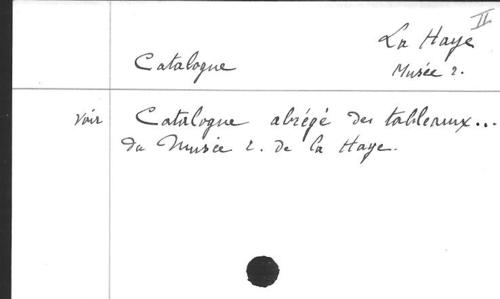 II
La Haye
Catalogue Musée r.
voir Catalogue abrégé des tableaux...
du Musée r. de la Haye.